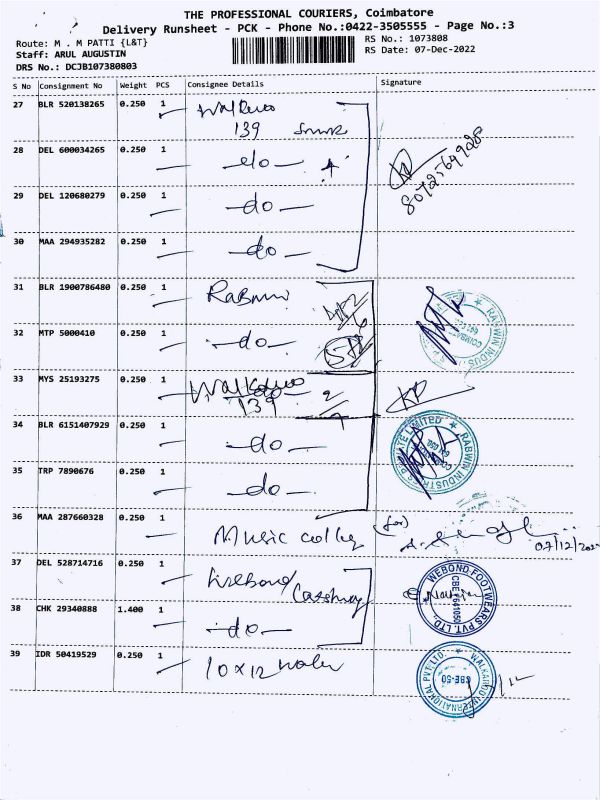 THE PROFESSIONAL COURIERS, Coimbatore
Delivery Runsheet - PCK - Phone No.:0422-3505555 - Page No.:3
Route: M . M PATTI {L&T}
RS No.: 1073808
Staff: ARUL AUGUSTIN
RS Date: 07-Dec-2022
DRS No.: DCJB107380803
S No Consignment No Weight PCS Consignee Details Signature
27 BLR 520138265 0.250 1
139
28 DEL 600034265 0.250 1 -do-
8072564928
29 DEL 120680279 0.250 1 -do-
30 MAA 294935282 0.250 1 -do-
31 BLR 1900786480 0.250 1
32 MTP 5000410 0.250 1 -do-
33 MYS 25193275 0.250 1
139
34 BLR 6151407929 0.250 1 -do-
PRIVATE LIMITED ★ RABWIN INDUSTRIES
35 TRP 7890676 0.250 1 -do-
36 MAA 287660328 0.250 1 Music colleg
(for)
07/12/202
37 DEL 528714716 0.250 1
WEBOND FOOTWEARS PVT. LTD.
CBE - 641050
38 CHK 29340888 1.400 1 -do-
39 IDR 50419529 0.250 1 10x12
WALKAROO INTERNATIONAL PVT. LTD.
CBE-50